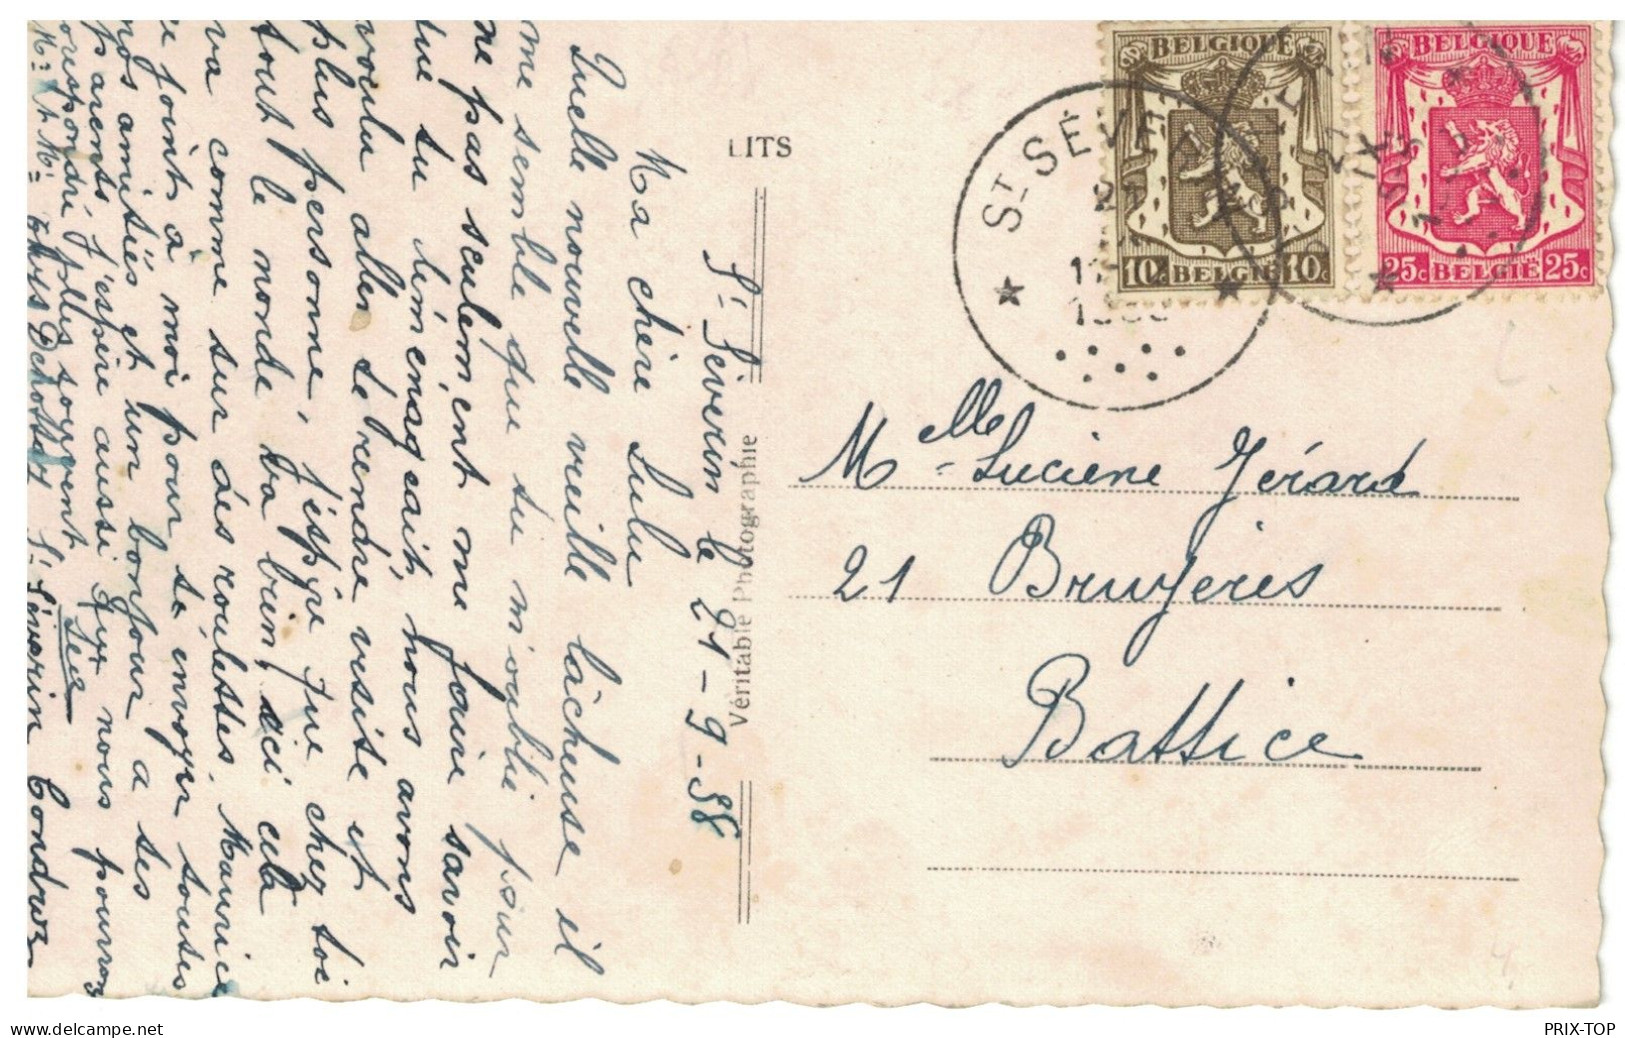 St Séverin le 21-9-38
Ma chère Lulu
Quelle nouvelle vieille lâcheuse il
me semble que tu m'oublie pour
ne pas seulement me faire savoir
que tu déménageait, nous avons
voulu aller te rendre visite et
plus personne, j'éspère que chez toi
tout le monde va bien, ici cela
va comme sur des roulettes. Maurice
se joint à moi pour te envoyer toutes
nos amitiés et un bonjour a tes
parents j'espère aussi que nous pourrons
correspondre plus souvent
Mr et Me Thys Dehossay St Séverin Condroz
LITS
Véritable Photographie
BELGIQUE
10c BELGIË 10c
BELGIQUE
25c BELGIË 25c
ST SÉVE
21
Melle Luciène Gérard
21 Bruyères
Battice
PRIX-TOP